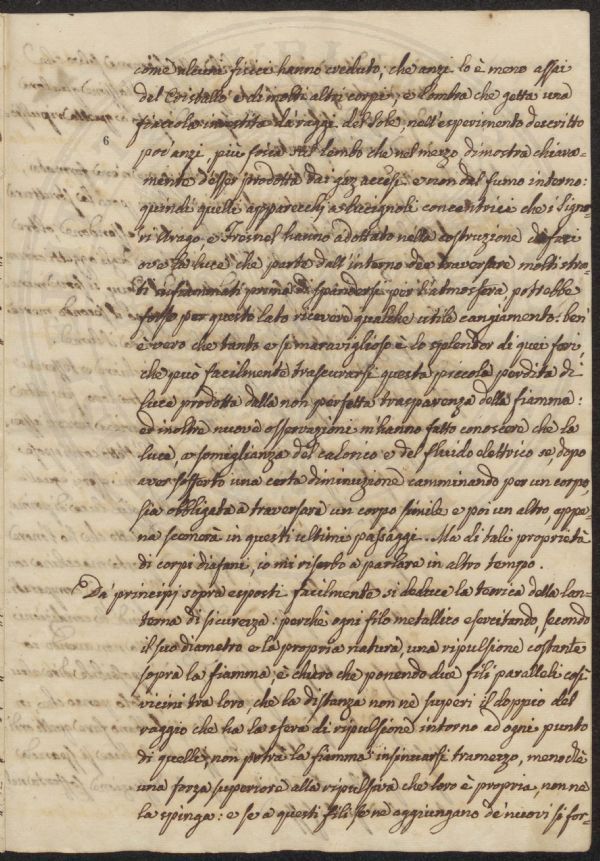 come alcuni fisici hanno creduto, che anzi lo è meno assai
del Cristallo e di molti altri corpi; e l'ombra che getta una
fiaccola investita da raggi del Sole, nell'esperimento descritto
6
poc'anzi, più fosca sul lembo che nel mezzo dimostra chiara-
mente d'esser prodotta dai gaz accesi e non dal fumo interno:
quindi quelli apparecchj a lucignoli concentrici che i Signo-
ri Arago, e Fresnel hanno adottato nella costruzione di fari
ove la luce che parte dall'interno dee traversare molti stra-
ti infiammati prima di spandersi per l'atmosfera, potrebbe
forse per questo lato ricevere qualche utile cangiamento: ben
è vero che tanto e sì maraviglioso è lo splendor di quei fari,
che può facilmente trascurarsi questa piccola perdita di
luce prodotta dalla non perfetta trasparenza della fiamma:
ed inoltre nuove osservazioni m'hanno fatto conoscere che la
luce, a somiglianza del calorico e del fluido elettrico se, dopo
aver sofferto una certa diminuzione camminando per un corpo,
sia obbligata a traversare un corpo simile e poi un altro, appe-
na scemerà in questi ultimi passaggi. Ma di tali proprietà
di corpi diafani, io mi riserbo a parlare in altro tempo.
Da' principj sopra esposti facilmente si deduce la teorica della lan-
terna di sicurezza: perchè ogni filo metallico esercitando, secondo
il suo diametro e la propria natura, una ripulsione costante
sopra la fiamma, è chiaro che ponendo due fili paralleli così
vicini tra loro, che la distanza non ne superi il doppio del
raggio che ha la sfera di ripulsione intorno ad ogni punto
di quelli, non potrà la fiamma insinuarsi tramezzo, menochè
una forza superiore alla ripulsiva che loro è propria, non ne
la spinga: e se a questi fili se ne aggiungano de' nuovi sì for-